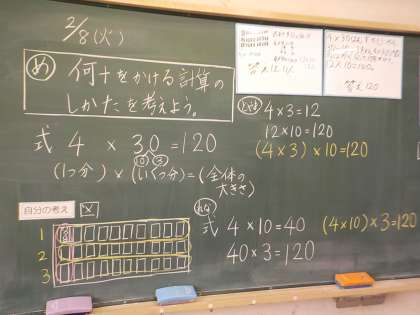 2/8(火)
め 何十をかける計算の
しかたを考えよう。
式 4 × 30 = 120
10 3
(1つ分) × (いくつ分) = (全体の
大きさ)
自分の考え
1
2
3
4×3=12
12×10=120
(4×3)×10=120
式 4×10=40 (4×10)×3=120
40×3=120
答え120